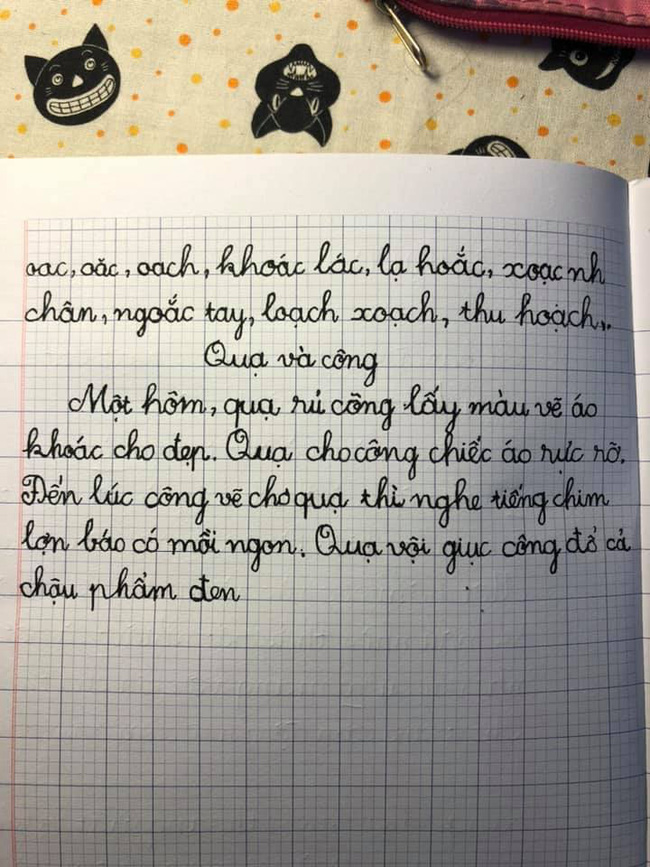 oac, oăc, oach, khoác lác, lạ hoắc, xoạc nh
chân, ngoắc tay, loạch xoạch, thu hoạch,.
Quạ và công
Một hôm, quạ rủ công lấy màu vẽ áo
khoác cho đẹp. Quạ cho công chiếc áo rực rỡ.
Đến lúc công vẽ cho quạ thì nghe tiếng chim
lợn báo có mồi ngon. Quạ vội giục công đổ cả
chậu phẩm đen